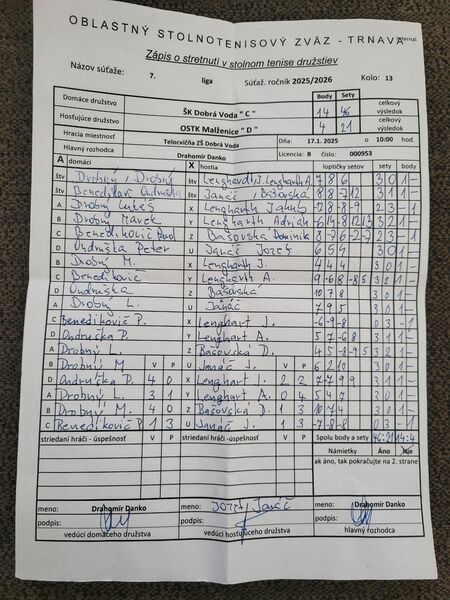 OBLASTNÝ STOLNOTENISOVÝ ZVÄZ - TRNAVA
Internal
Zápis o stretnutí v stolnom tenise družstiev
Názov súťaže: 7. liga Súťaž. ročník 2025/2026 Kolo: 13
Body Sety
Domáce družstvo ŠK Dobrá Voda " C " 14 46 celkový výsledok
Hosťujúce družstvo OSTK Malženice " D " 4 21 celkový výsledok
Hracia miestnosť Telocvičňa ZŠ Dobrá Voda Dňa: 17.1. 2025 o 10:00 hod.
Hlavný rozhodca Drahomír Danko Licencia: B číslo: 000953
A domáci X hostia loptičky setov sety body
štv Drobný / Drobný štv Lenghardt J. Lenghardt A. 7 8 6 3 0 1 -
štv Benedikovič Ondruška štv Janáč / Bašovská 3 1 -
A Drobný Lukáš X Lenghardt Jakub 2 3 - 1
B Drobný Marek Y Lenghardt Adrián 3 2 1 -
C Benedikovič Z Bašovská Dominika 3 2 1 -
D Ondruška Peter U Janáč Jozef 6 5 4 3 0 1 -
B Drobný M. X Lenghardt J. 4 4 4 3 0 1 -
C Benedikovič Y Lenghardt A. 3 2 1 -
D Ondruška Z Bašovská 10 7 8 3 0 1 -
A Drobný L. U Janáč 7 9 5 3 0 1 -
C Benedikovič P. X Lenghart J. -6 -9 -8 0 3 - 1
D Ondruška P. Y Lenghart A. 5 7 -6 8 3 1 1 -
A Drobný L. Z Bašovská D. 3 2 1 -
B Drobný M V P U Janáč J. V P 6 2 10 3 0 1 -
D Ondruška P. 4 0 X Lenghart J. 2 2 3 1 1 -
A Drobný L. 3 1 Y Lenghart A. 0 4 5 4 7 3 0 1 -
B Drobný M. 4 0 Z Bašovská D. 1 3 10 7 4 3 0 1 -
C Benedikovič P 1 3 U Janáč J. 1 3 -7 -8 -8 0 3 - 1
striedaní hráči - úspešnosť V P striedaní hráči - úspešnosť V P Spolu body a sety 46:21 14:4
Námietky Áno Nie
ak áno, tak pokračujte na 2. strane
meno: Drahomír Danko meno: Jozef Janáč meno: Drahomír Danko
podpis: podpis: podpis:
vedúci domáceho družstva vedúci hosťujúceho družstva hlavný rozhodca